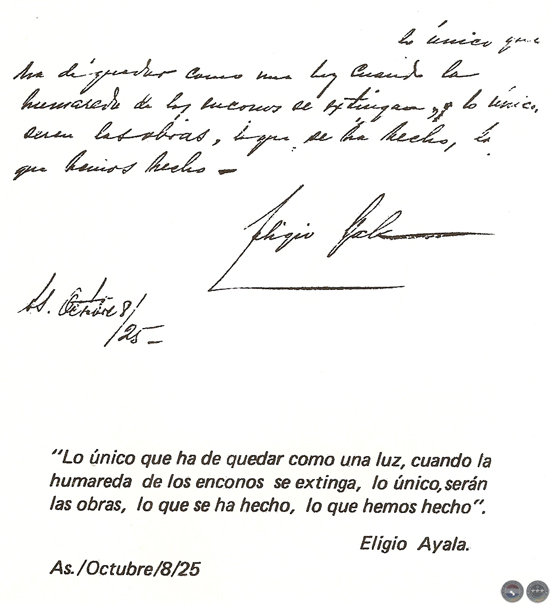 lo único que
ha de quedar como una luz cuando la
humareda de los enconos se extingan, lo único,
seran las obras, lo que se ha hecho, lo
que hemos hecho –
Eligio Ayala
As. Octubre 8/25 –
"Lo único que ha de quedar como una luz, cuando la
humareda de los enconos se extinga, lo único, serán
las obras, lo que se ha hecho, lo que hemos hecho".
Eligio Ayala.
As./Octubre/8/25